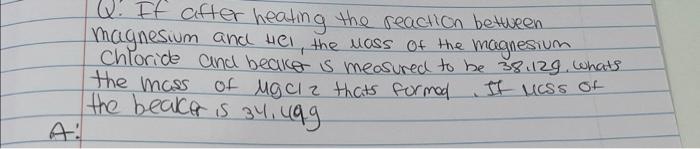 Q: If after heating the reaction between
magnesium and HCl, the mass of the magnesium
chloride and beaker is measured to be 38.12g. whats
the mass of MgCl2 thats formed. If mass of
the beaker is 34.49g
A: